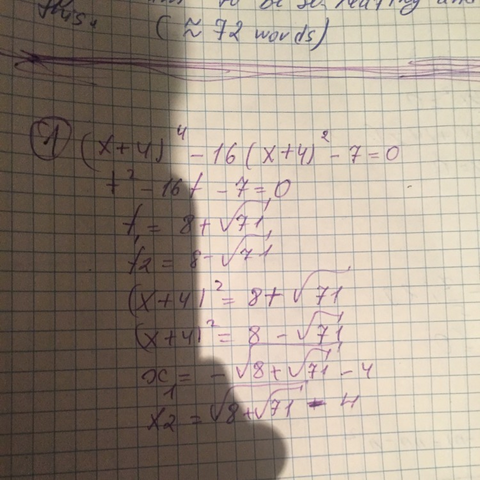 this. (≈ 72 words)
① (x+4)⁴ - 16(x+4)² - 7 = 0
t² - 16t - 7 = 0
t₁ = 8 + √71
t₂ = 8 - √71
(x+4)² = 8 + √71
(x+4)² = 8 - √71
x₁ = -√(8+√71) - 4
x₂ = √(8+√71) - 4